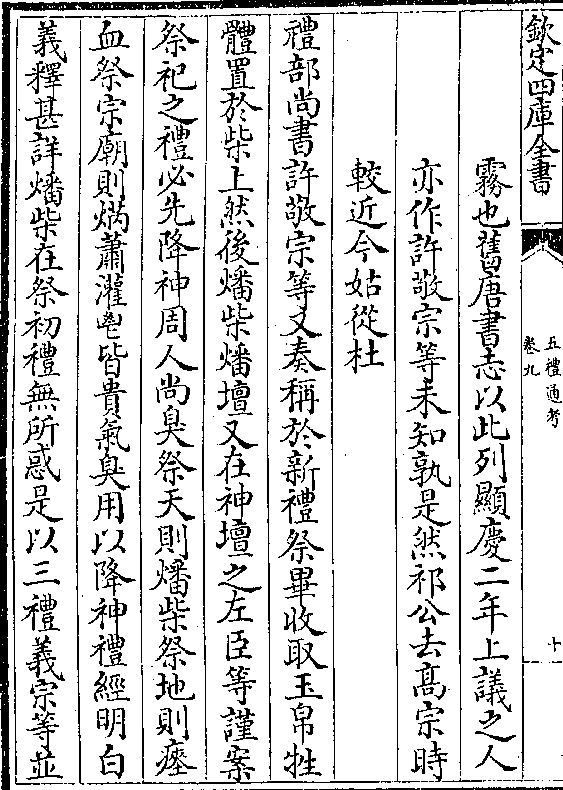 欽定四庫全書
五禮通考
卷九
十
霧也舊唐書志以此列顯慶二年上議之人
亦作許敬宗等未知孰是然祁公去髙宗時
較近今姑從杜
禮部尚書許敬宗等又奏稱於新禮祭畢收取玉帛牲
體置於柴上然後燔柴燔壇又在神壇之左臣等謹案
祭祀之禮必先降神周人尚臭祭天則燔柴祭地則瘞
血祭宗廟則焫蕭灌鬯皆貴氣臭用以降神禮經明白
義釋甚詳燔柴在祭初禮無所惑是以三禮義宗等並